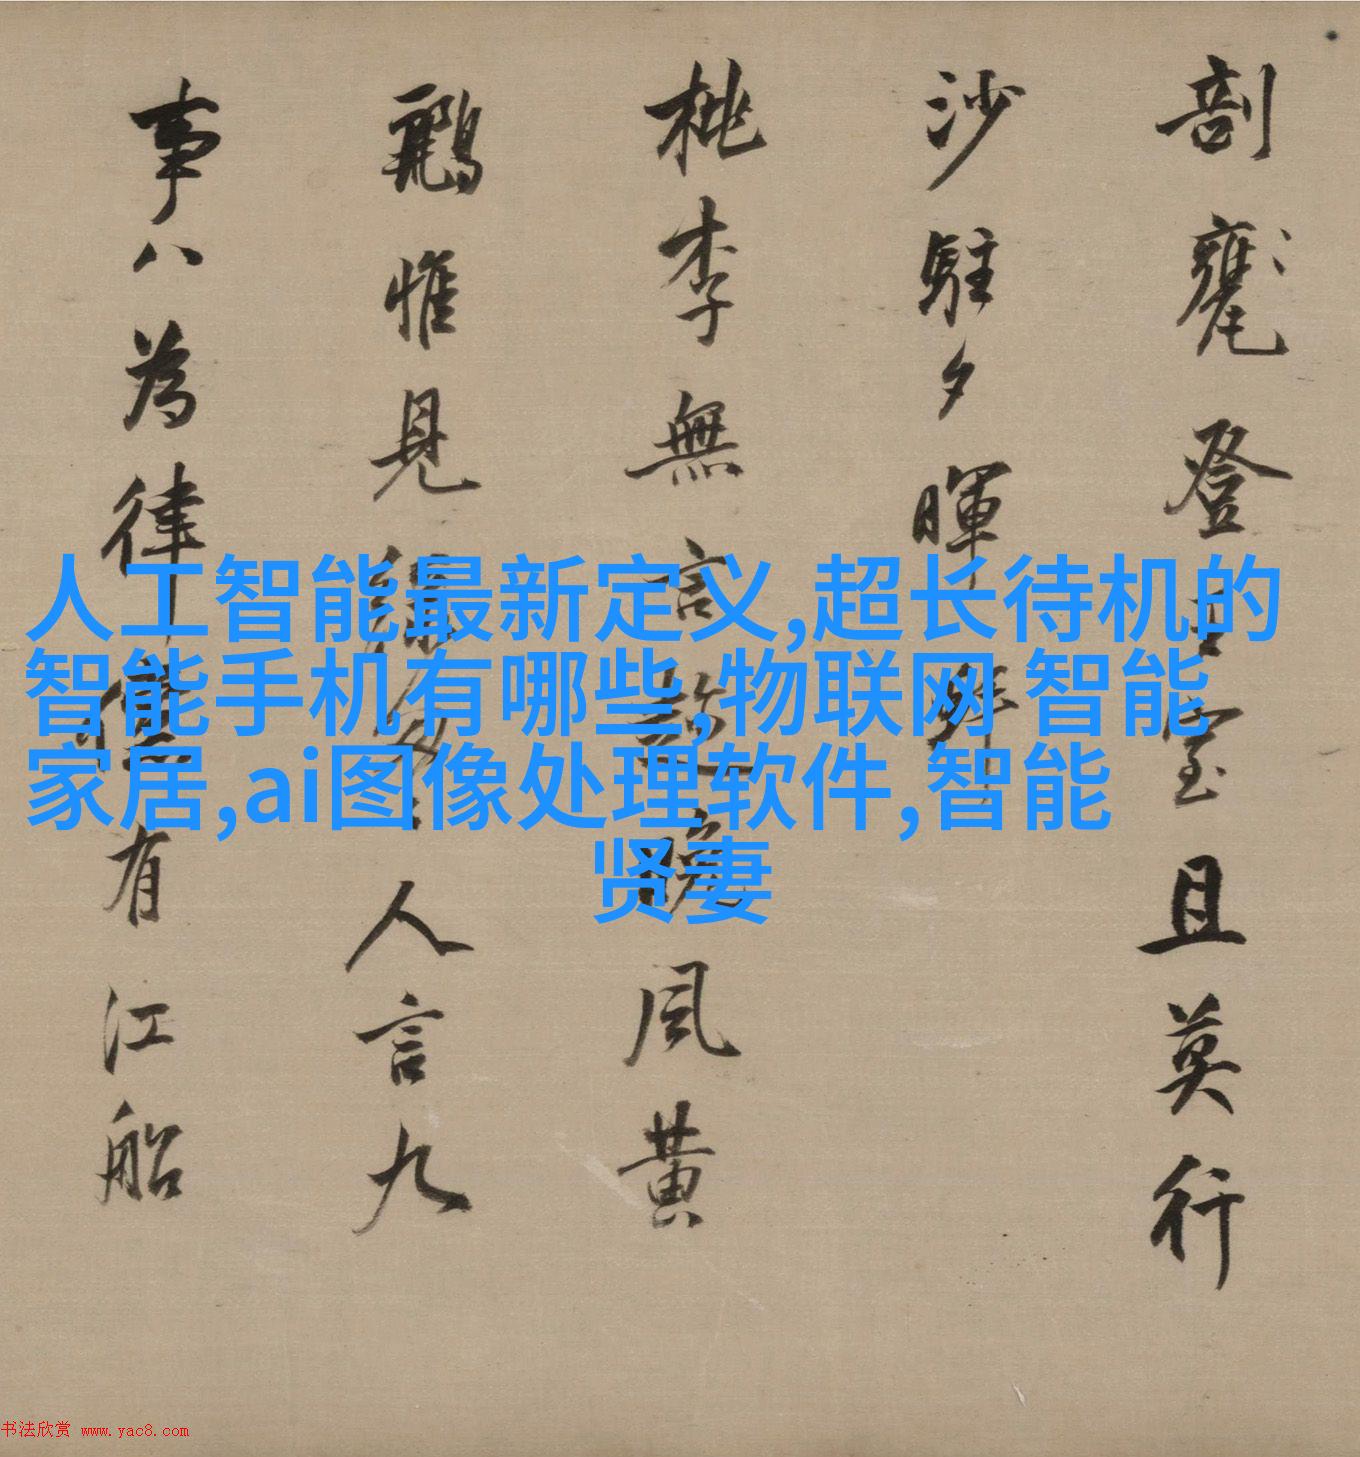 剖甕登室且莫行
沙駐夕暉
桃李無言晚風黃
鸝惟見綠匆人言九
事八為律儻有江船
人工智能最新定义,超长待机的
智能手机有哪些,物联网 智能
家居,ai图像处理软件,智能
贤妻
书法欣赏 www.yac8.com